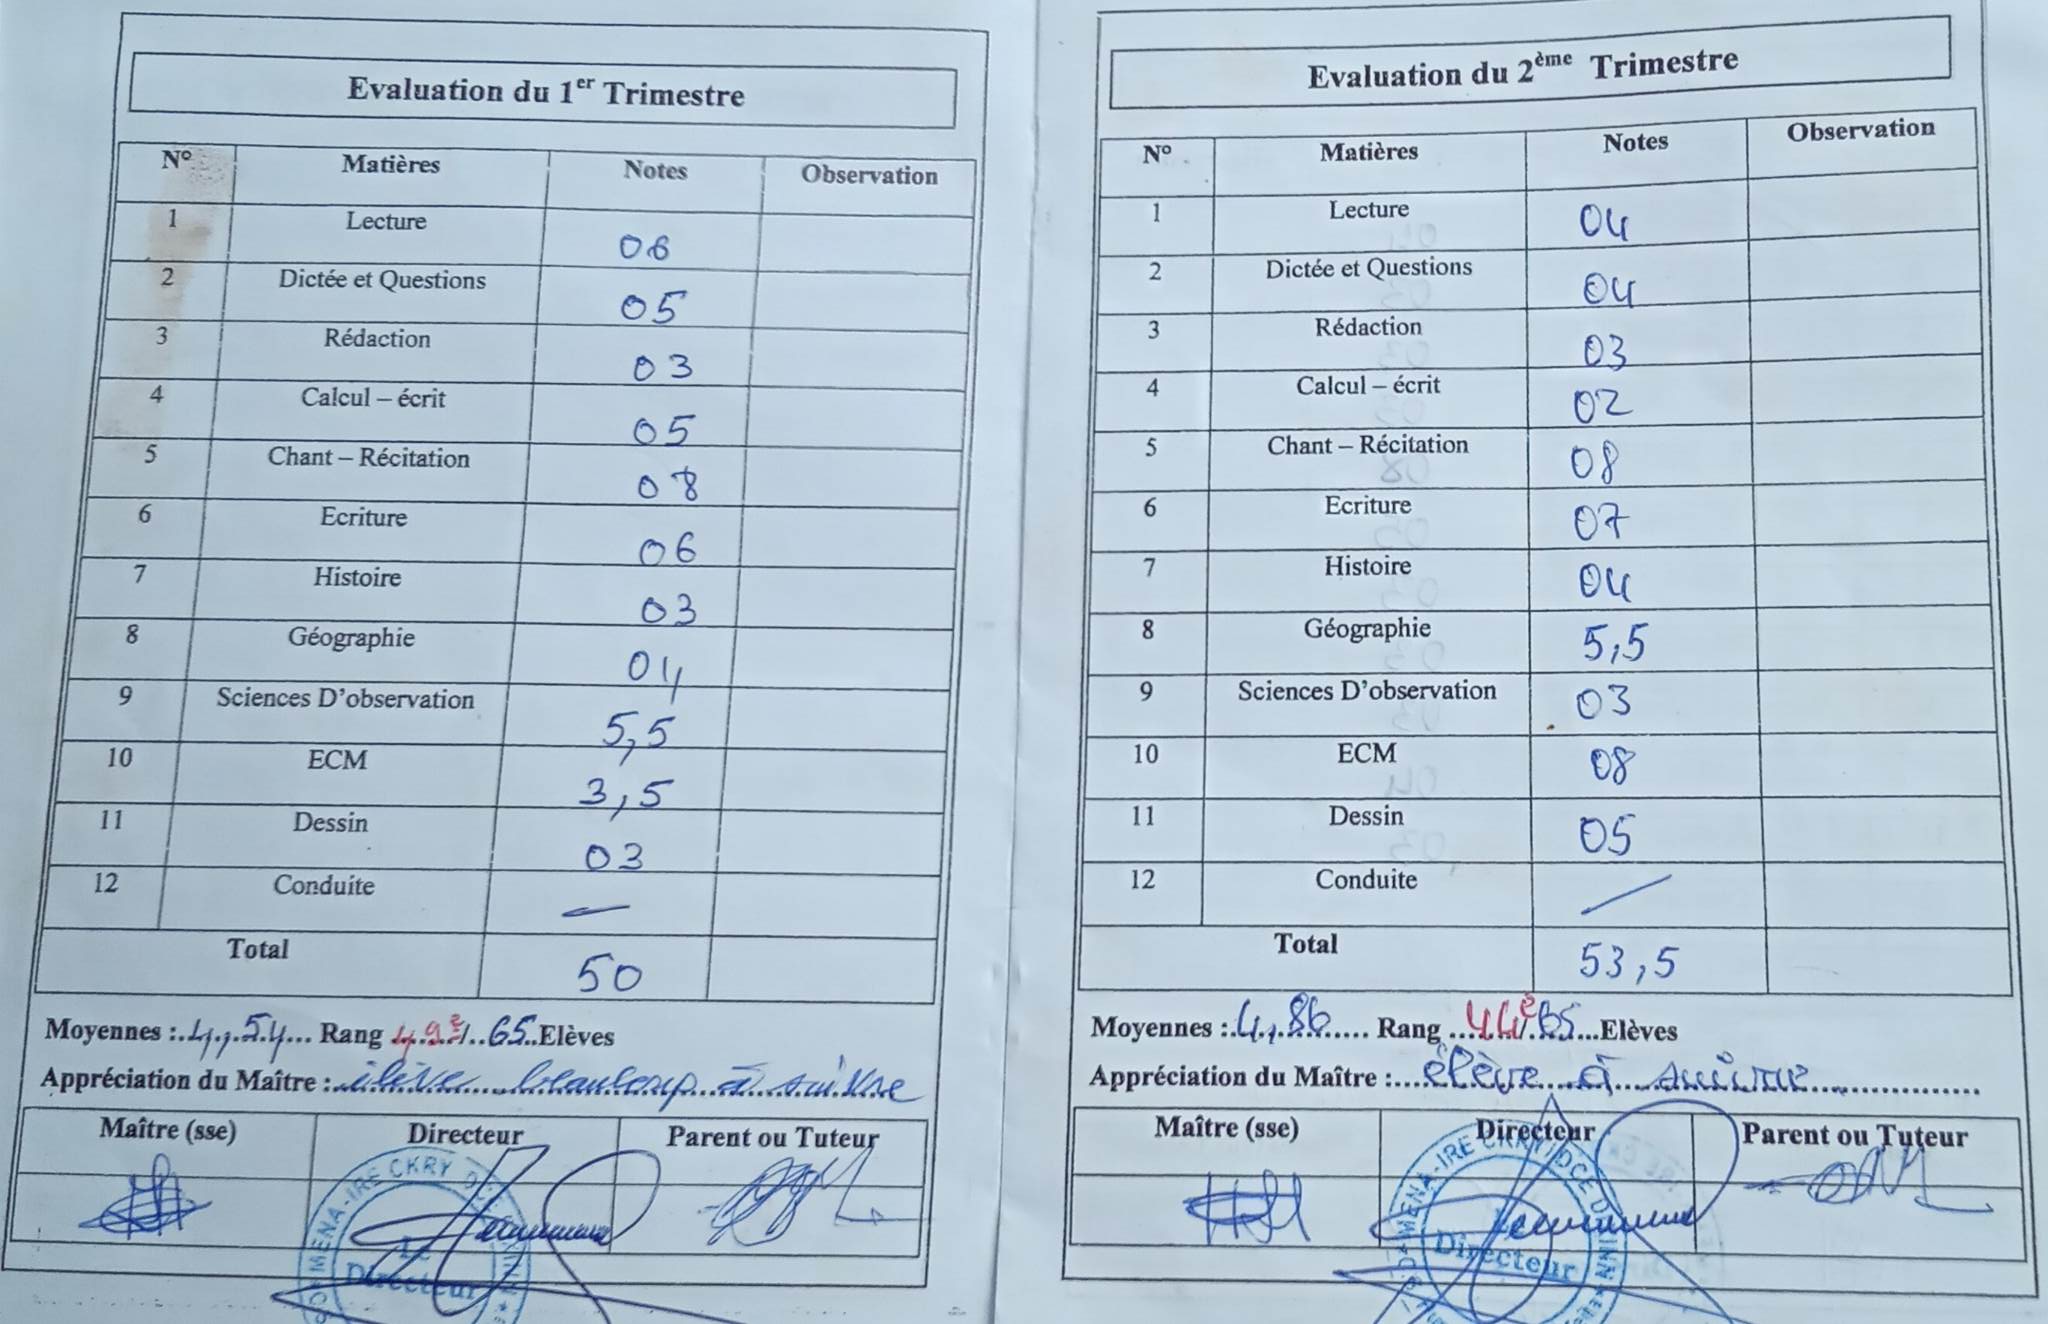 Evaluation du 1er Trimestre
N° Matières Notes Observation
1 Lecture 06
2 Dictée et Questions 05
3 Rédaction 03
4 Calcul – écrit 05
5 Chant – Récitation 08
6 Ecriture 06
7 Histoire 03
8 Géographie 04
9 Sciences D'observation 5,5
10 ECM 3,5
11 Dessin 03
12 Conduite —
Total 50
Moyennes : 4,54 Rang 49e/65 Elèves
Appréciation du Maître : élève beaucoup à suivre
Maître (sse) Directeur Parent ou Tuteur
MENA-IRE CKRY
Le
Directeur
Evaluation du 2ème Trimestre
N° Matières Notes Observation
1 Lecture 04
2 Dictée et Questions 04
3 Rédaction 03
4 Calcul – écrit 02
5 Chant – Récitation 08
6 Ecriture 07
7 Histoire 04
8 Géographie 5,5
9 Sciences D'observation 03
10 ECM 08
11 Dessin 05
12 Conduite —
Total 53,5
Moyennes : 4,86 Rang 44e/65 Elèves
Appréciation du Maître : élève à suivre
Maître (sse) Directeur Parent ou Tuteur
MENA-IRE CKRY/DCE DUBINN
Directeur